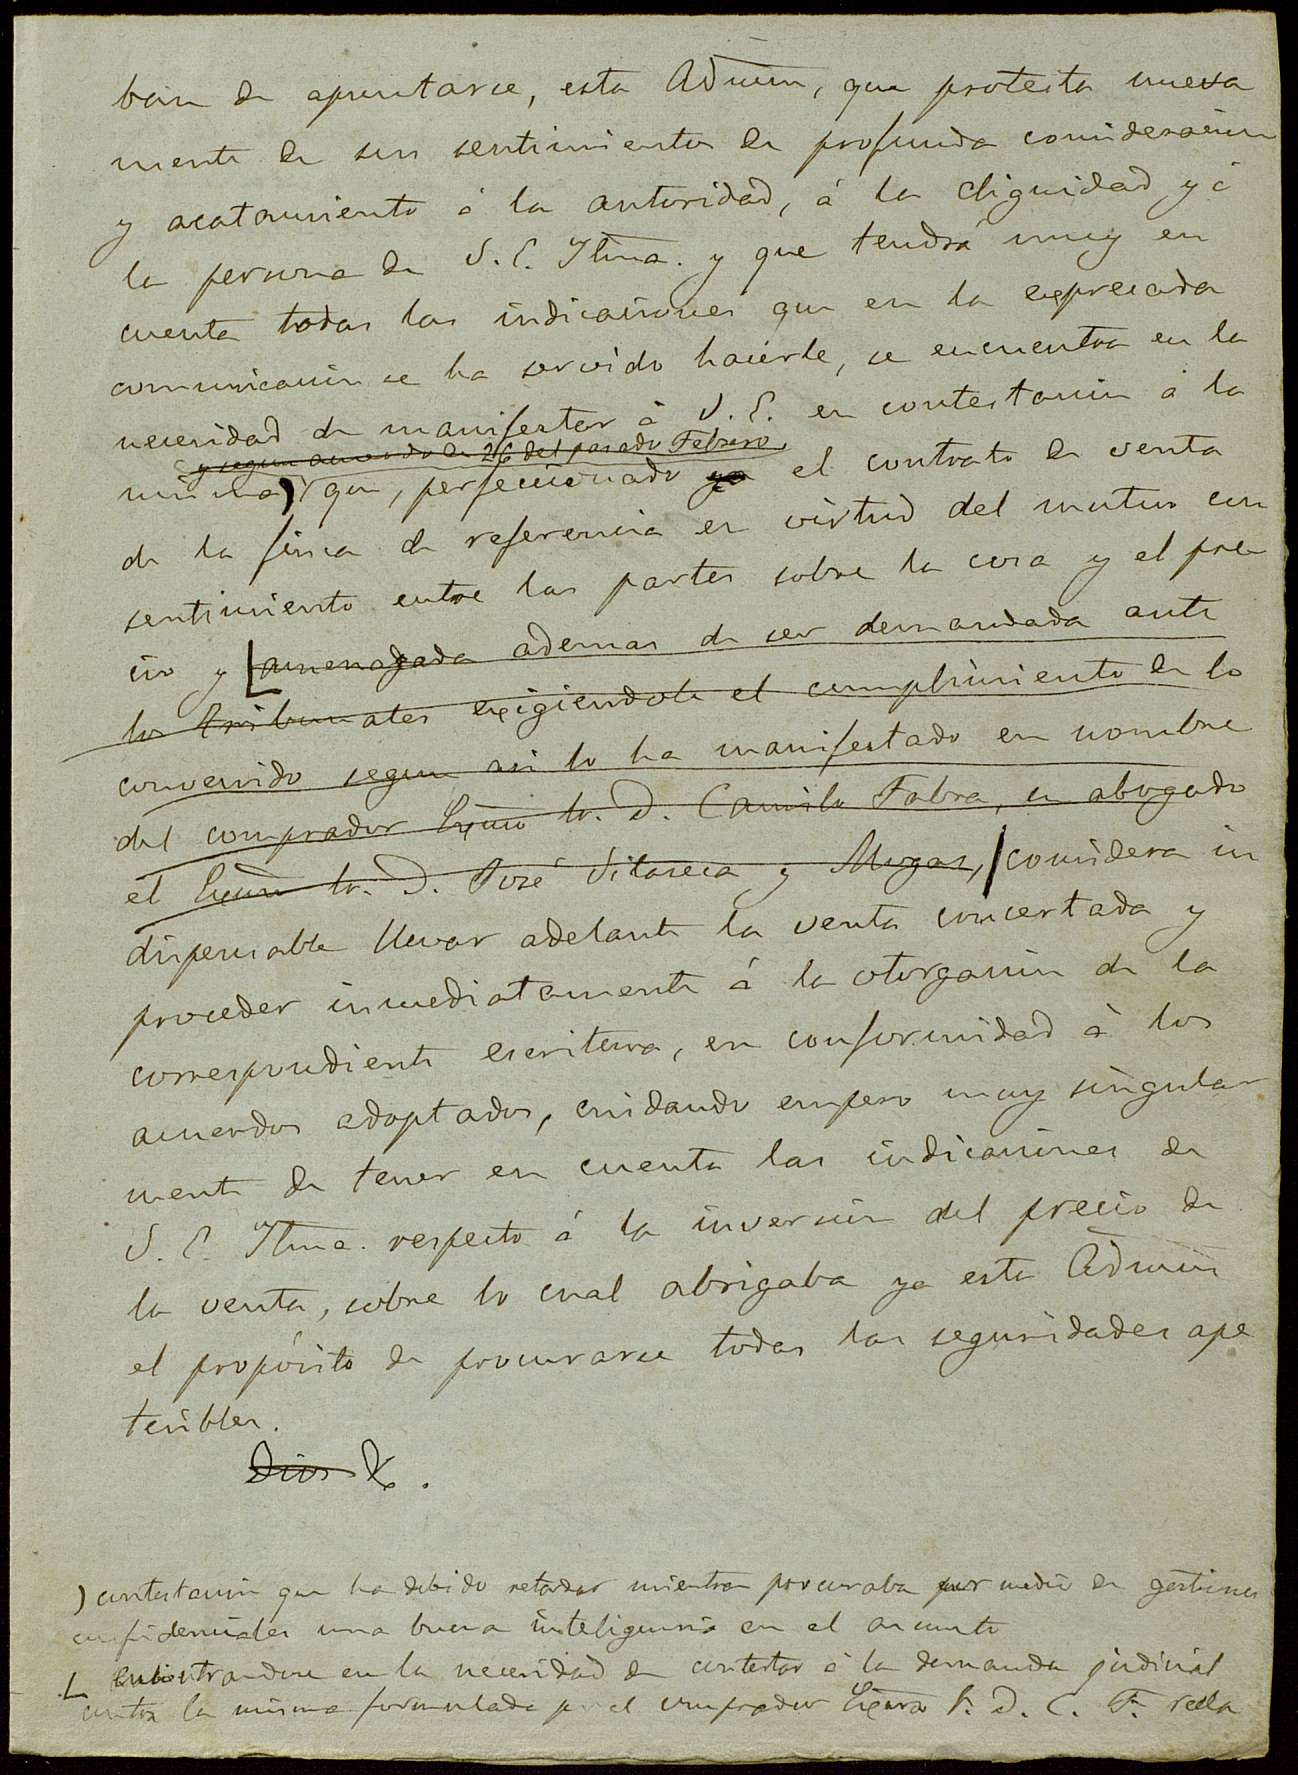 ban de apuntarse, esta Admón, que protesta nueva
mente de sus sentimientos de profunda consideración
y acatamiento á la autoridad, á la dignidad y á
la persona de V. E. Ilma. y que tendrá muy en
cuenta todas las indicaciones que en la expresada
comunicación se ha servido hacerle, se encuentra en la
necesidad de manifestar á V. E. en contestación á la
y segun acuerdo de 26 del pasado Febrero,
misma) que, perfeccionado ya el contrato de venta
de la finca de referencia en virtud del mutuo con
sentimiento entre las partes sobre la cosa y el pre
cio y amenazada ademas de ser demandada ante
los tribunales exigiendole el cumplimiento de lo
convenido segun asi lo ha manifestado en nombre
del comprador Excmo Sr. D. Camilo Fabra, su abogado
el Excmo Sr. D. José Vilaseca y Mogas, considera in
dispensable llevar adelante la venta concertada y
proceder inmediatamente á la otorgación de la
correspondiente escritura, en conformidad á los
acuerdos adoptados, cuidando empero muy singular
mente de tener en cuenta las indicaciones de
V. E. Ilma. respecto á la inversión del precio de
la venta, sobre lo cual abrigaba ya esta Admón
el propósito de procurarse todas las seguridades ape
tecibles.
Dios &.
) contestación que ha debido retardar mientras procuraba por medio de gestiones
confidenciales una buena inteligencia en el asunto
L encontrandose en la necesidad de contestar á la demanda judicial
contra la misma formulada por el comprador Excmo S. D. C. F.